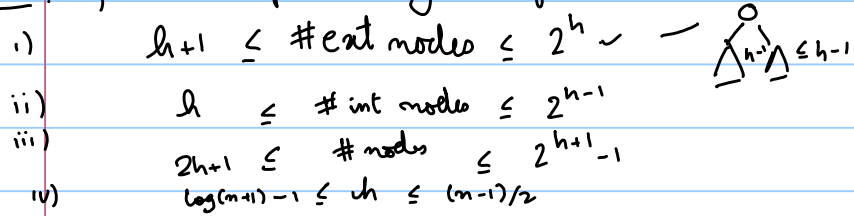 i) h+1 ≤ # ext nodes ≤ 2^h ✓ — h-1 ≤ h-1
ii) h ≤ # int nodes ≤ 2^{h-1}
iii) 2h+1 ≤ # nodes ≤ 2^{h+1}-1
iv) log(n+1)-1 ≤ h ≤ (n-1)/2